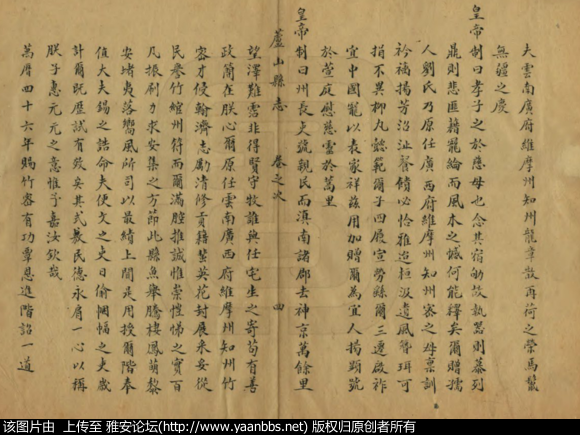 夫雲南廣府維摩州知州龍章散再荷之榮馬鬣
無疆之慶
皇帝制曰孝子之於慈母也念其宿昉故執器則慕列
鼎則悲匪藉龍綸而風木之憾何能釋矣爾贈孺
人劉氏乃原任廣西府維摩州知州寨之母稟訓
衿褵揚芳沼沚餐饋必恰雅造桓汲遺風簪珥可
捐不異柳丸懿範爾子四履宣勞縣爾三遷啟祚
宜中國寵以表家祥茲用加贈爾為宜人揭顯號
於萱庭慰慈靈於萬里
皇帝制曰州長史號親民而滇南諸郡去神京萬餘里
蘆山縣志 卷之次 四
望澤雖雲非得賢守牧誰與任宅生之寄苟有善
政簡在朕心爾原任雲南廣西府維摩州知州竹
密才優翰濟志勵清修貢籍蜚英花封展采妥從
民譽竹綰州符而爾滿腔推誠惟崇愷悌之實百
凡振刷力求安集之方節此縣魚舉騰棲鳳萌黎
安堵夷落嚮風所司以最績上聞是用授爾階奉
值大夫錫之誥命夫便文之史日偷悃愊之夫歲
計爾既歷試有效矣其式義民德永肩一心以稱
朕子惠元元之意惟予嘉汝欽哉
萬曆四十六年賜竹密有功覃恩進階詔一道
该图片由 上传至 雅安论坛(http://www.yaanbbs.net) 版权归原创者所有